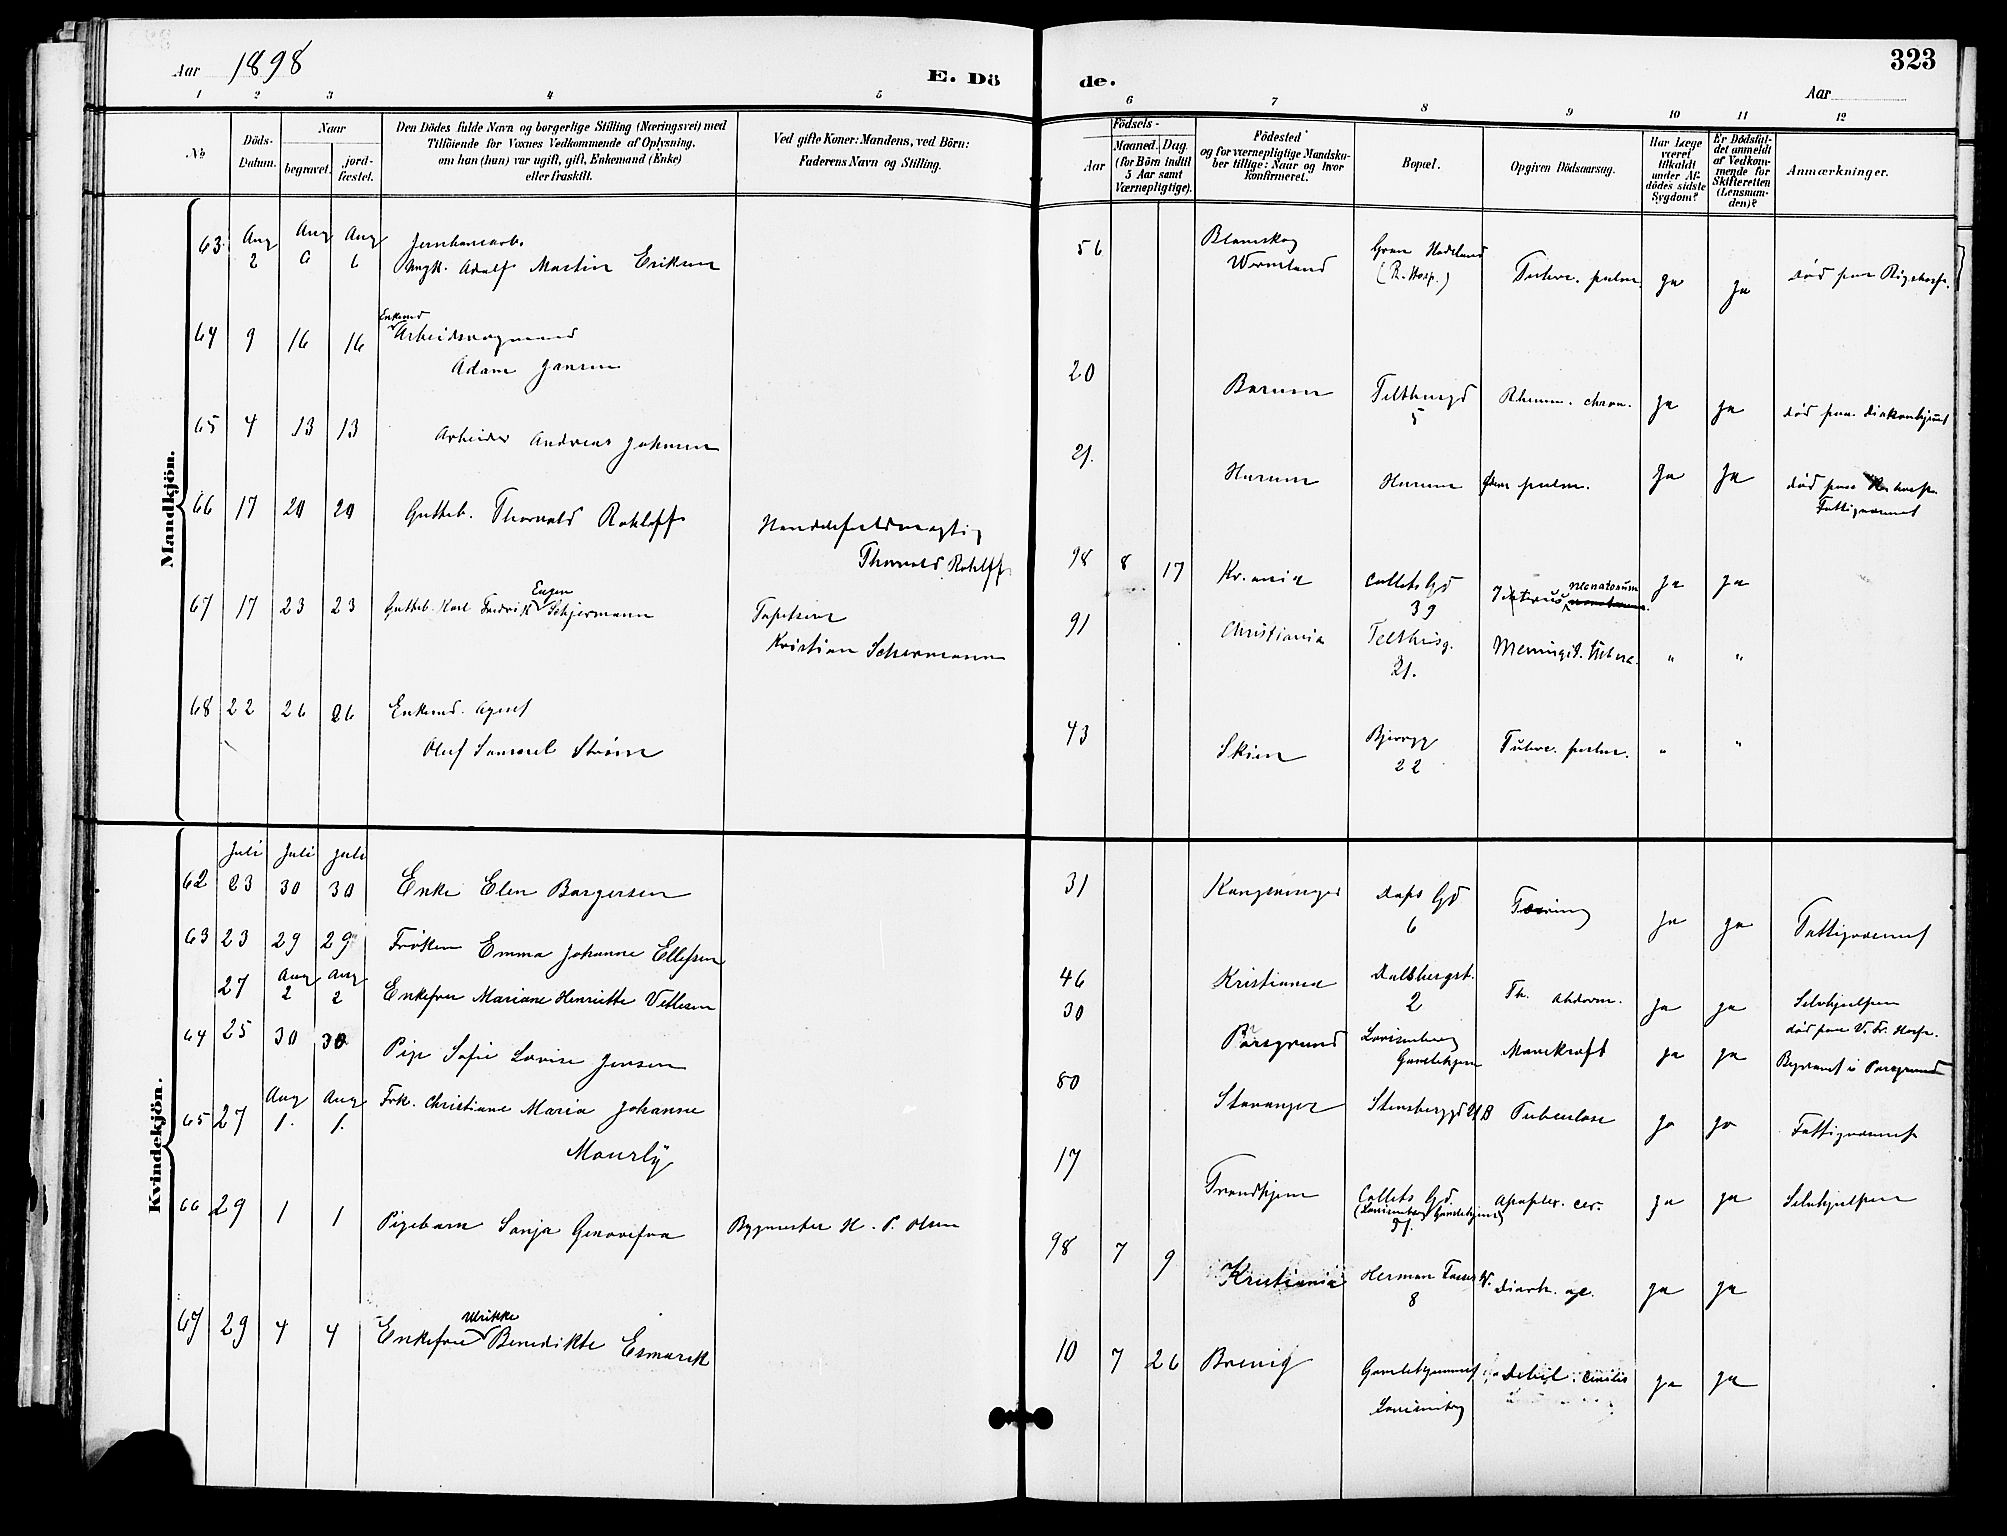 Aar 1898
E. Dö
de.
323
Aar
1 2 3 4 5 6 7 8 9 10 11 12
No
Döds-
Datum.
Naar
begravet.
jord-
fæstet.
Den Dödes fulde Navn og borgerlige Stilling (Næringsvei) med
Tilföiende for Voxnes Vedkommende af Oplysning,
om han (hun) var ugift, gift, Enkemand (Enke)
eller fraskilt.
Ved gifte Koner: Mandens, ved Börn:
Faderens Navn og Stilling.
Födsels-
Aar
Maaned. Dag.
(for Börn indtil
5 Aar samt
Værnepligtige).
Födested
og for værnepligtige Mandska-
ber tillige: Naar og hvor
konfirmeret.
Bopæl.
Opgiven Dödsaarsag.
Har Læge
været
tilkaldt
under Af-
dödes sidste
Sygdom?
Er Dödsfal-
det anmeldt
af Vedkom-
mende for
Skifteretten
(Lensman-
den)?
Anmærkninger.
Mandkjön.
63. Aug 2 Aug 6 Aug 6
Ungk. Adolf Martin Eriksen
56
Wermeland
Gran Hadeland
(R. Hosp.)
Tuberc. pulm. ja ja død paa Rigshosp.
64 9 16 16 Enkemd
Arbeidsvognmand
Adam Jansen
20 Bærum Telthusgd
5
Rheum. chron. ja ja død paa Diakonhjemmet
65 4 13 13 Arbeider Andreas Johnsen
21. Hurum Hurum pulm. ja ja død paa
Fattigvæsnet
66 17 20 20 Gutteb. Thorvald Rohloff
Thorvald Rohloff
98 8 17 Kr.ania Collets Gd
39
Ikterus neonatorum ja ja
67 17 23 23 Gutteb. Karl Fredrik Eugen Schjermann
Tapetserer
Kristian Schermann
91 Christiania Telthusg.
21.
Meningit. tuberc. " "
68 22 26 26 Enkemd. Agent
Oluf Samuel Strøm
43 Skien Bjerregg
22
Tuberc. pulm. " "
Kvindekjön.
62 Juli 23 Juli 30 Juli 30 Enke Elen Børgersen
31 Kongsvinger Daps Gd
6
Tæring ja ja Fattigvæsnet
63 23 29 29 Frøken Emma Johanne Ellefsen
46 Kristiania Dalsbergst.
2
Th. abdom. ja ja Selvhjælpen
død paa V. Kr. Hosp.
27 Aug 2 Aug 2 Enkefrue Mariane Henriette Vetlesen
30 Porsgrund Lovisenberg
Gamlehjem
Mavekræft ja ja Bgravet i Porsgrund
64 25 30 30 Pige Sofie Lovise Jensen
80 Stavanger Stensberggd 21 B Tuberculose ja ja Fattigvæsnet
65 27 Aug 1. Aug 1. Frk. Christiane Maria Johanne
Mourly
17 Trondhjem Collets Gd.
(Lovisenberg Gamlehjem)
Apoplex. cer. ja ja Selvhjælpen
66 29 1 1 Pigebarn Sonja Genovefva Bygmester H. P. Olsen
98 7 9 Kristiania Herman Foss
8
Diarh. ac. ja ja
67 29 4 4 Enkefrue Ulrikke Benedikte Esmarck
10 7 26 Brevig Gamlehjemmet
Lovisenberg
Debil. senilis ja ja